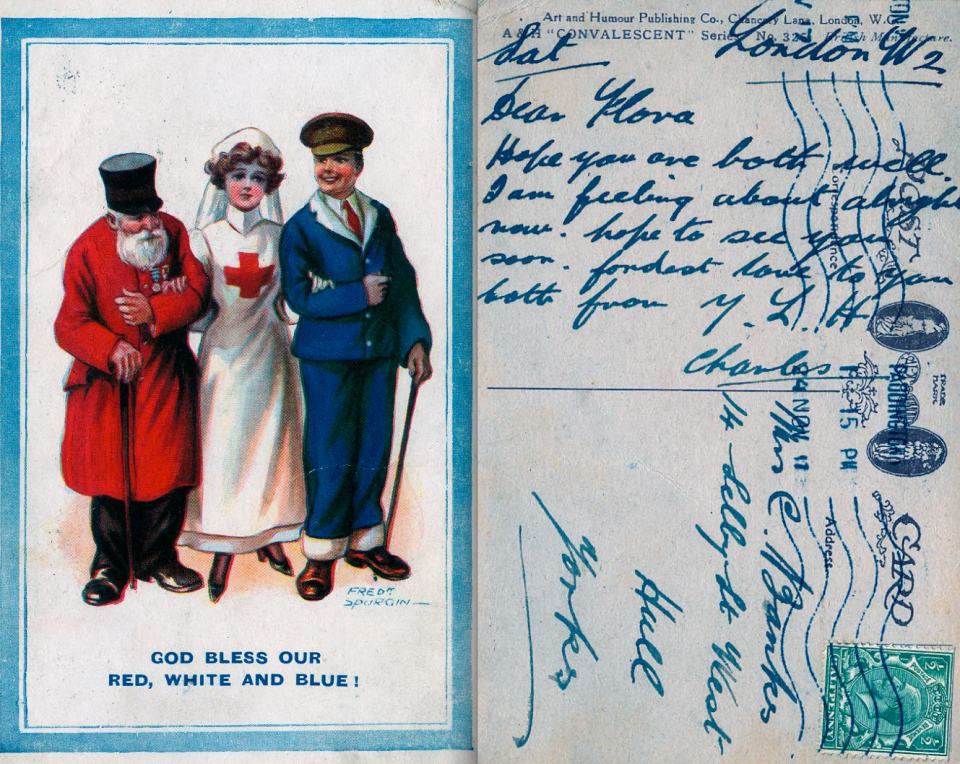 FREDK
SPURGIN
GOD BLESS OUR
RED, WHITE AND BLUE!
Art and Humour Publishing Co., Chancery Lane, London, W.C.
A & H "CONVALESCENT" Series No. 32 British Manufacture.
Sat London W2
Dear Flora
Hope you are both well.
I am feeling about alright
now. hope to see you
soon. fondest love to you
both from
Charles
POST
CARD
Correspondence
Address
TRADE
MARK
PADDINGTON
15 PM
NOV
C. Branks
14 Selby St West
Hull
Yorks
HALFPENNY